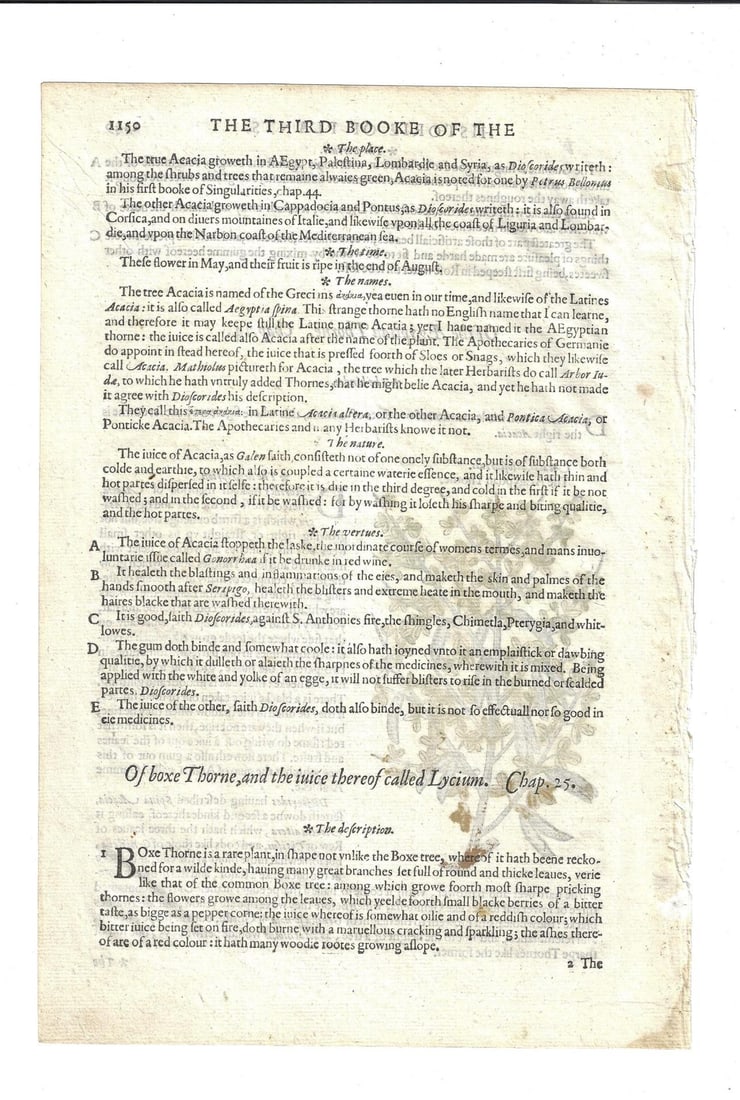 1150 THE THIRD BOOKE OF THE
❋ The place.
The true Acacia groweth in AEgypt, Palestina, Lombardie and Syria, as Dioſcorides writeth:
among the ſhrubs and trees that remaine alwaies green, Acacia is noted for one by Petrus Bellonius
in his firſt booke of Singularities, chap.44.
The other Acacia groweth in Cappadocia and Pontus, as Dioſcorides writeth: it is alſo found in
Corſica, and on diuers mountaines of Italie, and likewiſe vpon all the coaſt of Liguria and Lombar-
die, and vpon the Narbon coaſt of the Mediterranean ſea.
❋ The time.
Theſe flower in May, and their fruit is ripe in the end of Auguſt.
❋ The names.
The tree Acacia is named of the Grecians ἀκακία, yea euen in our time, and likewiſe of the Latines
Acacia: it is alſo called Aegyptia ſpina. This ſtrange thorne hath no Engliſh name that I can learne,
and therefore it may keepe ſtill the Latine name Acatia; yet I haue named it the AEgyptian
thorne: the iuice is called alſo Acacia after the name of the plant. The Apothecaries of Germanie
do appoint in ſtead hereof, the iuice that is preſſed foorth of Sloes or Snags, which they likewiſe
call Acacia. Mathiolus pictureth for Acacia, the tree which the later Herbariſts do call Arbor Iu-
dæ, to which he hath vntruly added Thornes, that he might belie Acacia, and yet he hath not made
it agree with Dioſcorides his deſcription.
They call this in Latine Acacia altera, or the other Acacia, and Pontica Acacia, or
Ponticke Acacia. The Apothecaries and many Herbariſts knowe it not.
The nature.
The iuice of Acacia, as Galen ſaith, conſiſteth not of one onely ſubſtance, but is of ſubſtance both
colde and earthie, to which alſo is coupled a certaine waterie eſſence, and it likewiſe hath thin and
hot partes diſperſed in it ſelfe: therefore it is drie in the third degree, and cold in the firſt if it be not
waſhed; and in the ſecond, if it be waſhed: for by waſhing it loſeth his ſharpe and biting qualitie,
and the hot partes.
❋ The vertues.
A The iuice of Acacia ſtoppeth the laske, the inordinate courſe of womens termes, and mans inuo-
luntarie iſſue called Gonorrhæa if it be drunke in red wine.
B It healeth the blaſtings and inflammations of the eies, and maketh the skin and palmes of the
hands ſmooth after Serpigo, healeth the bliſters and extreme heate in the mouth, and maketh the
haires blacke that are waſhed therewith.
C It is good, ſaith Dioſcorides, againſt S. Anthonies fire, the ſhingles, Chimetla, Pterygia, and whit-
lowes.
D The gum doth binde and ſomewhat coole: it alſo hath ioyned vnto it an emplaiſtick or dawbing
qualitie, by which it dulleth or alaieth the ſharpnes of the medicines, wherewith it is mixed. Being
applied with the white and yolke of an egge, it will not ſuffer bliſters to riſe in the burned or ſcalded
partes. Dioſcorides.
E The iuice of the other, ſaith Dioſcorides, doth alſo binde, but it is not ſo effectuall nor ſo good in
eie medicines.
Of boxe Thorne, and the iuice thereof called Lycium. Chap. 25.
❋ The deſcription.
1 BOxe Thorne is a rare plant, in ſhape not vnlike the Boxe tree, whereof it hath beene recko-
ned for a wilde kinde, hauing many great branches ſet full of round and thicke leaues, verie
like that of the common Boxe tree: among which growe foorth moſt ſharpe pricking
thornes: the flowers growe among the leaues, which yeelde foorth ſmall blacke berries of a bitter
taſte, as bigge as a pepper corne: the iuice whereof is ſomewhat oilie and of a reddiſh colour; which
bitter iuice being ſet on fire, doth burne with a maruellous cracking and ſparkling; the aſhes there-
of are of a red colour: it hath many woodie rootes growing aſlope.
2 The